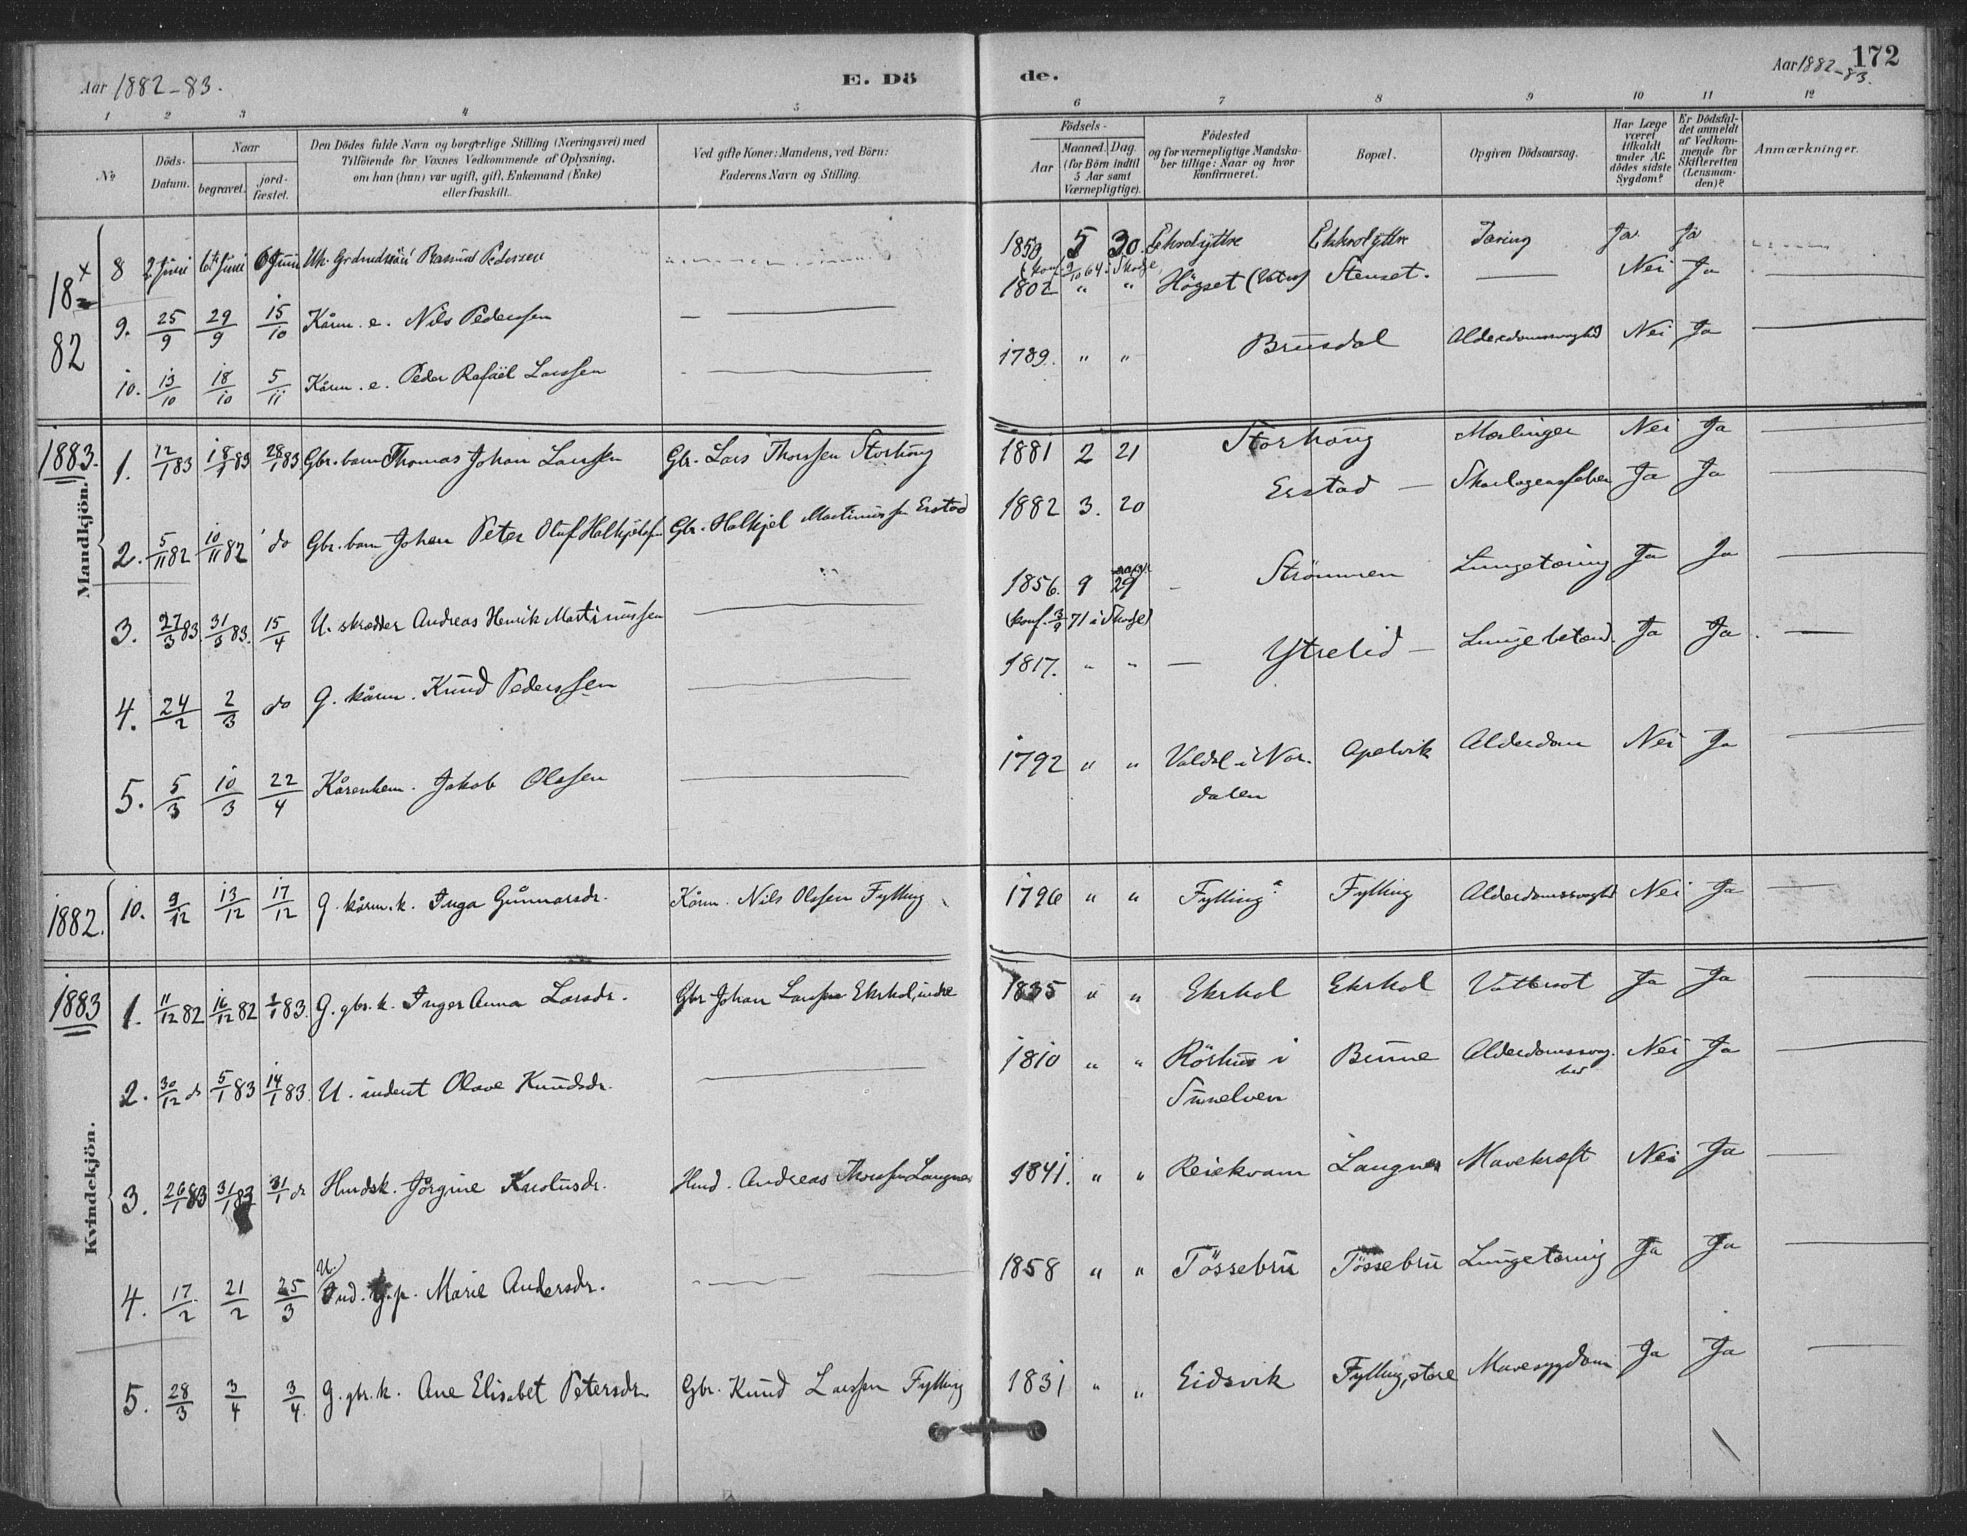 Aar 1882-83.
E. Dö
de.
Aar 1882-83.
172
1 2 3 4 5 6 7 8 9 10 11 12
No
Döds-Datum.
Naar
begravet.
jord-fæstet.
Den Dödes fulde Navn og borgerlige Stilling (Næringsvei) med
Tilföiende for Voxnes Vedkommende af Oplysning,
om han (hun) var ugift, gift, Enkemand (Enke)
eller fraskilt.
Ved gifte Koner: Mandens, ved Börn:
Faderens Navn og Stilling.
Födsels-
Aar
Maaned. Dag.
(for Börn indtil
5 Aar samt
Værnepligtige).
Födested
og for værnepligtige Mandska-
ber tillige: Naar og hvor
konfirmeret.
Bopæl.
Opgiven Dödsaarsag.
Har Læge
været
tilkaldt
under Af-
dödes sidste
Sygdom?
Er Dödsfal-
det anmeldt
af Vedkom-
mende for
Skifteretten
(Lensman-
den)?
Anmærkninger.
1882
Mandkjön.
8 2 Juni 6te Juni 6 Juni Rasmus Pedersen 1850 5 30 Tæring Ja Ja
(konf. 9/10 64 Skodje
9. 25/9 29/9 15/10 Kårm. e. Nils Pederssen 1802 " " Högset Stenset. Nei Ja
10. 13/10 18/10 5/11 Kårm. e. Peder Rafael Larssen 1789. " " Brusdal Alderdomssvaghed Nei Ja
1883.
1. 12/1 83 18/1 83 28/1 83 Gbr. barn Thomas Johan Larssen Gbr. Lars Thorssen Storhoug 1881 2 21 Storhoug Mæslinger Nei Ja
2. 5/11 82 10/11 82 do Gbr. barn Johan Peter Oluf Halkjelsen Gbr. Halkjel Martinussen Erstad 1882 3. 20 Erstad Skarlagensfeber Ja Ja
3. 27/3 83 31/3 83. 15/4 U. skrædder Andreas Henrik Martinussen 1856. 9 29 Strömmen Lungetæring Ja Ja
(konf. 3/9 71 i Skodje)
4. 24/2 2/3 do G. kårm. Knud Pederssen 1817. " " Ytrelid Lungebetænd. Ja Ja
5. 5/3 10/3 22/4 Kårenkem. Jakob Olssen 1792 " " Valdal i Nor-
dalen Apelvik Alderdom Nei Ja
1882.
10. 9/12 13/12 17/12 G. kårm. k. Inga Gunnarsdr. Kårm. Nils Olssen Fylling 1796 " " Fylling Fylling Alderdomssvaghed Nei Ja
1883
Kvindekjön.
1. 11/12 82 16/12 82 1/1 83. G. gbr. k. Inger Anna Larsdr. Gbr. Johan Larssen Ekrhol, indre 1835 " " Ekrhol Ekrhol Vattersot Ja Ja
2. 30/12 do 5/1 83 14/1 83. U. inderst Olave Knudsdr. 1810 " " Rörhus i
Sunelven Brune Alderdomssvag-
hed Nei Ja
3. 26/1 83 31/1 83 31/1 do Husdsk. Jörgine Karolusdr. Husd. Andreas Thorssen Langnes 1841. " " Reiekvam Langnes Mavekræft Nei Ja
4. 17/2 21/2 25/3 U Ind. Marie Andersdr. 1858 " " Tössebru Tössebru Lungetæring Ja Ja
5. 28/3 3/4 3/4. G. gbr. k. Ane Elisabet Petersdr. Gbr. Knud Larssen Fylling 1831 " " Eidsvik Fylling, store Mavesygdom Ja Ja